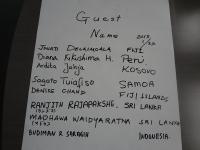 Guest
Name
Jnuti FIJI
Diana Kikushima H. Perú
Ardita Jahja KOSOVO
Sagato Tuiafiso SAMOA
DENISE CHAND FIJI ISLANDS
RANJITH RAJAPAKSHE, SRI LANKA
MADHAWA WAIDYARATNA SRI LANKA
BUDIMAN R. SARAGIH INDONESIA